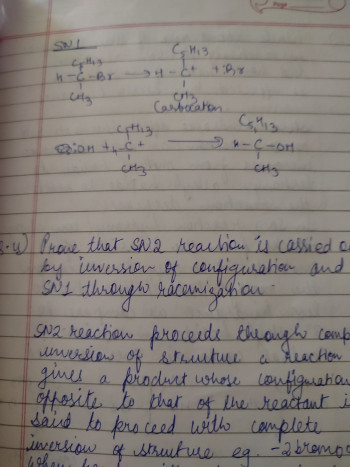 SN1
C6H13 C6H13
H - C - Br → H - C + + :Br
CH3 CH3
Carbocation
C6H13 C6H13
OH + H - C + → H - C - OH
CH3 CH3
Prove that SN2 reaction is carried
by inversion of configuration and
SN1 through racemization.
SN2 reaction proceeds through
inversion of structure a reaction
gives a product whose configuration
opposite to that of the reactant
said to proceed with complete
inversion of structure eg. -2